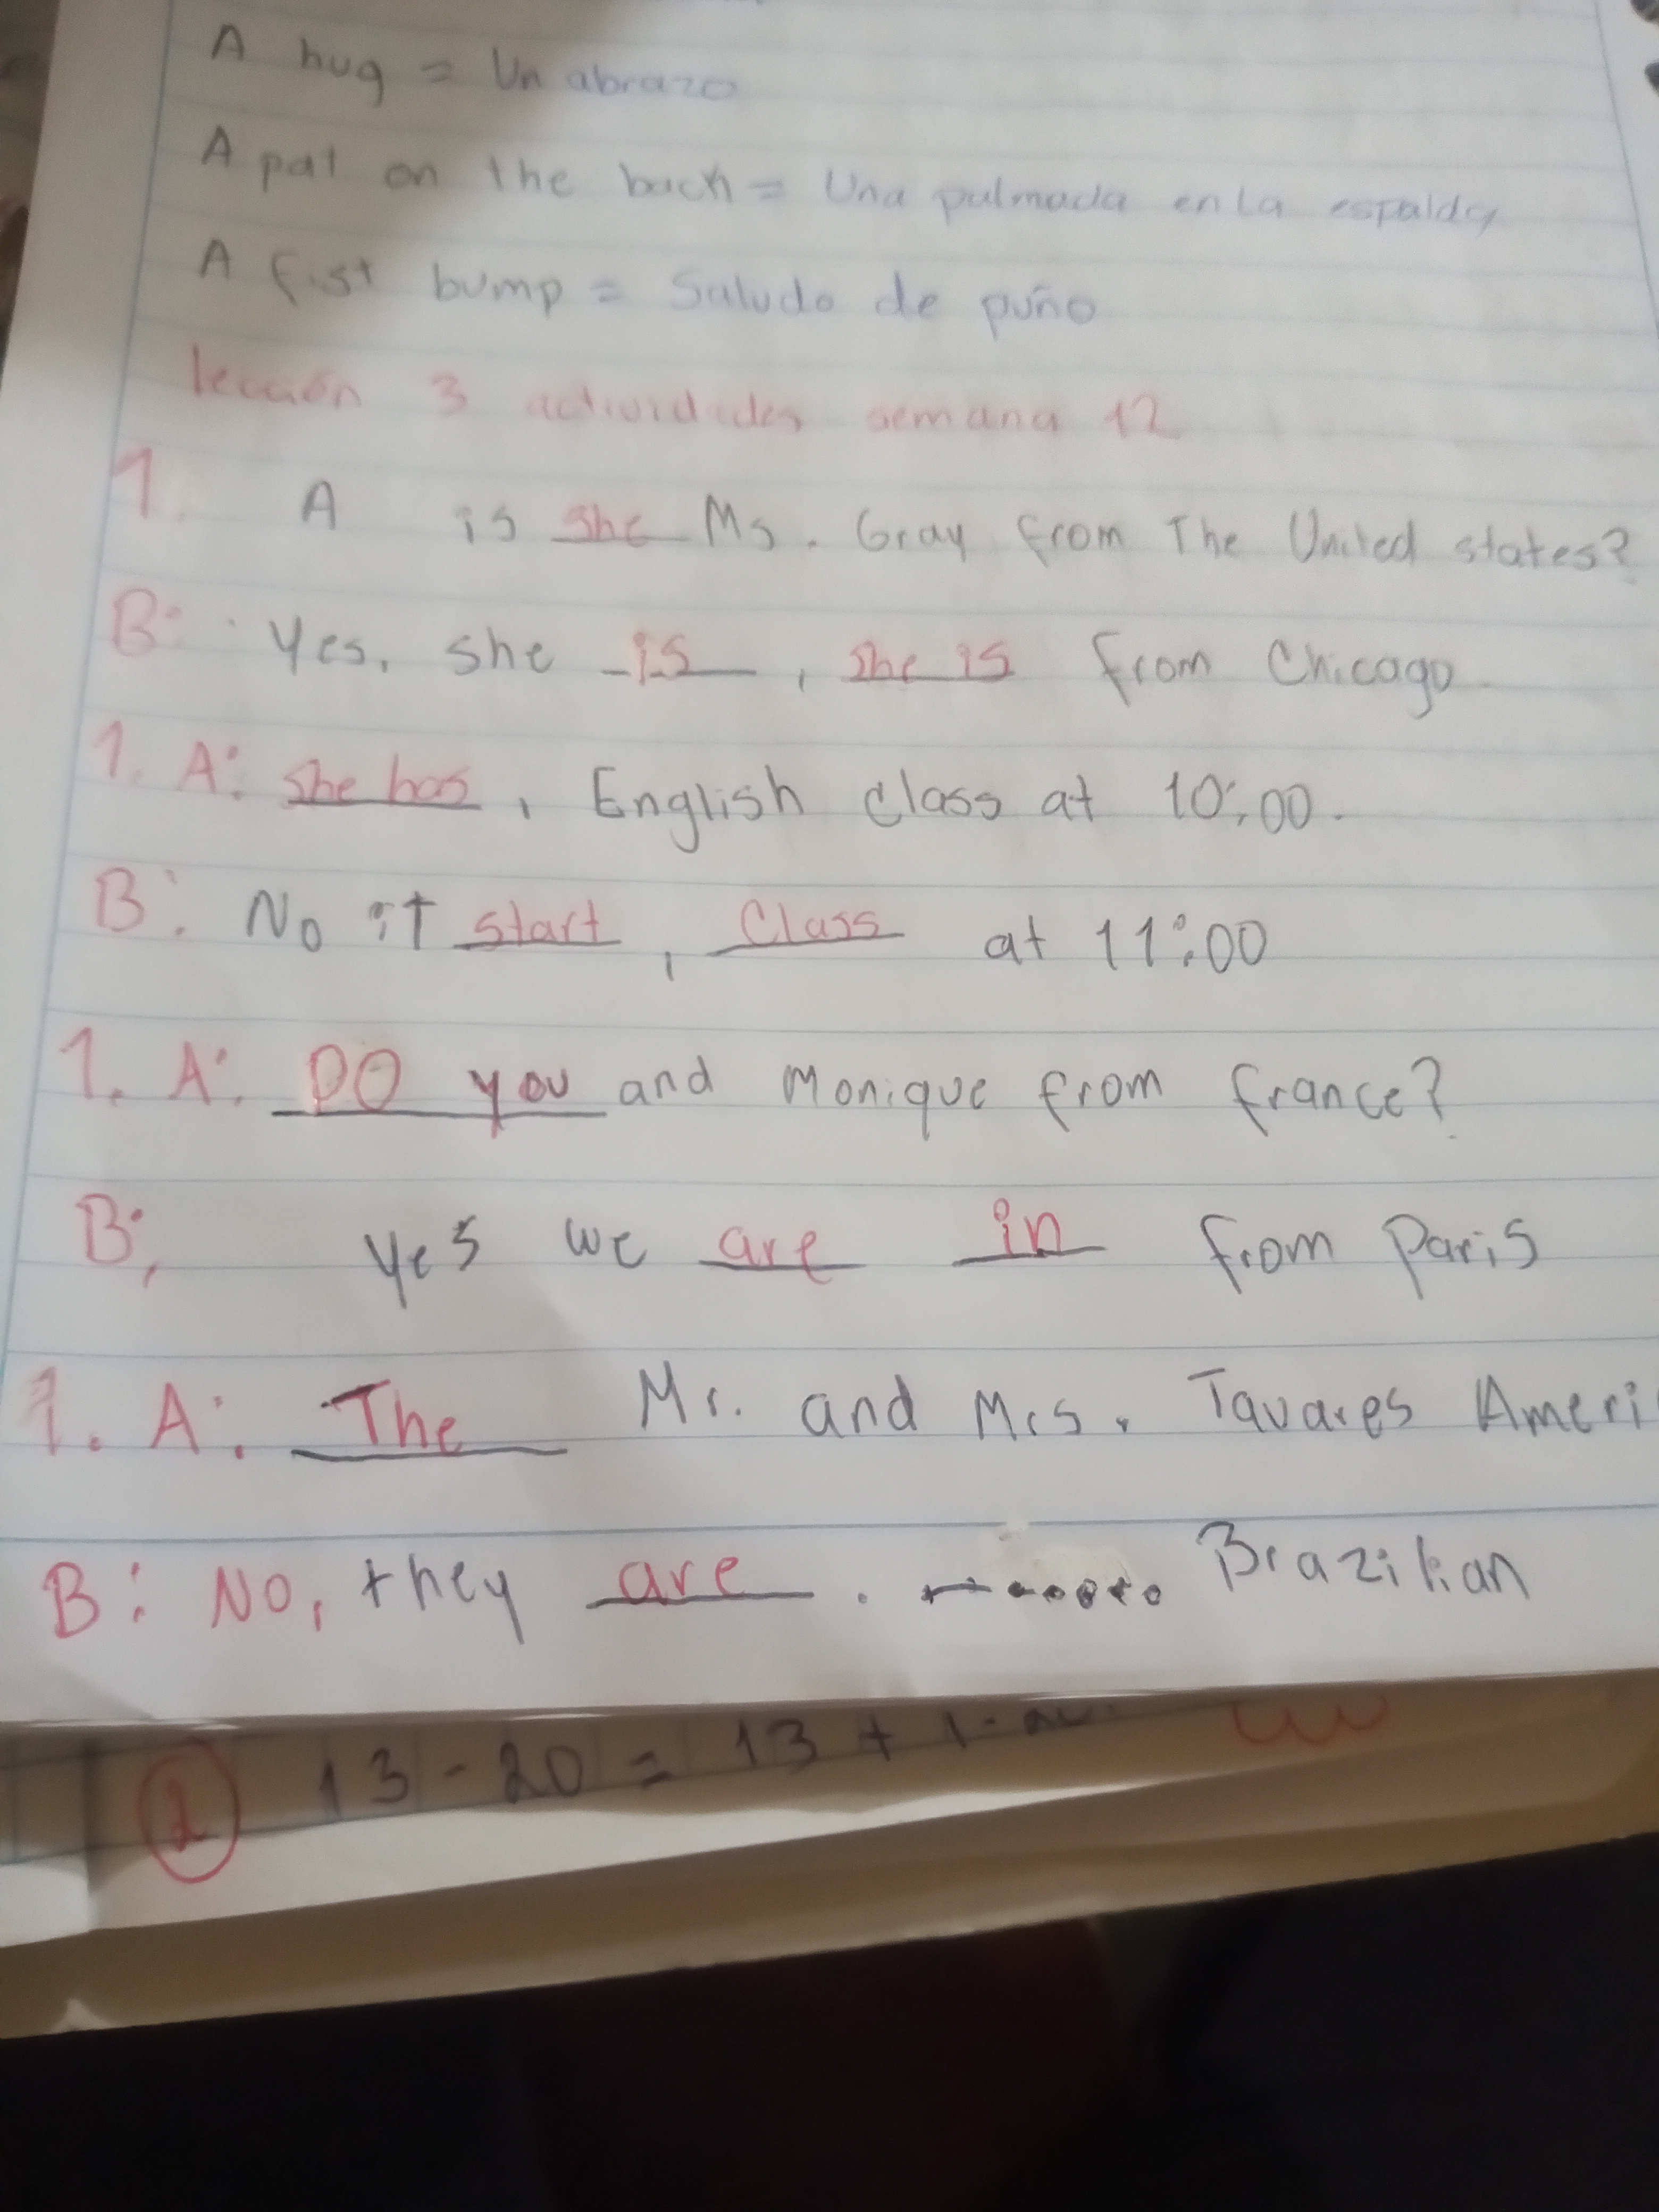 A hug = Un abrazo
A pat on the back = Una palmada en la espalda
A fist bump = Saludo de puño
lección 3 actividades semana 12
1. A is she Ms. Gray from The United states?
B: Yes, she is, she is from Chicago
1. A: She has, English Class at 10:00.
B: No it start, Class at 11:00
1. A: DO you and Monique from france?
B: Yes we are in from Paris
1. A: The Mr. and Mrs. Tavares Ameri
B: No, they are. Brazilian
2 13 - 20 = 13 +